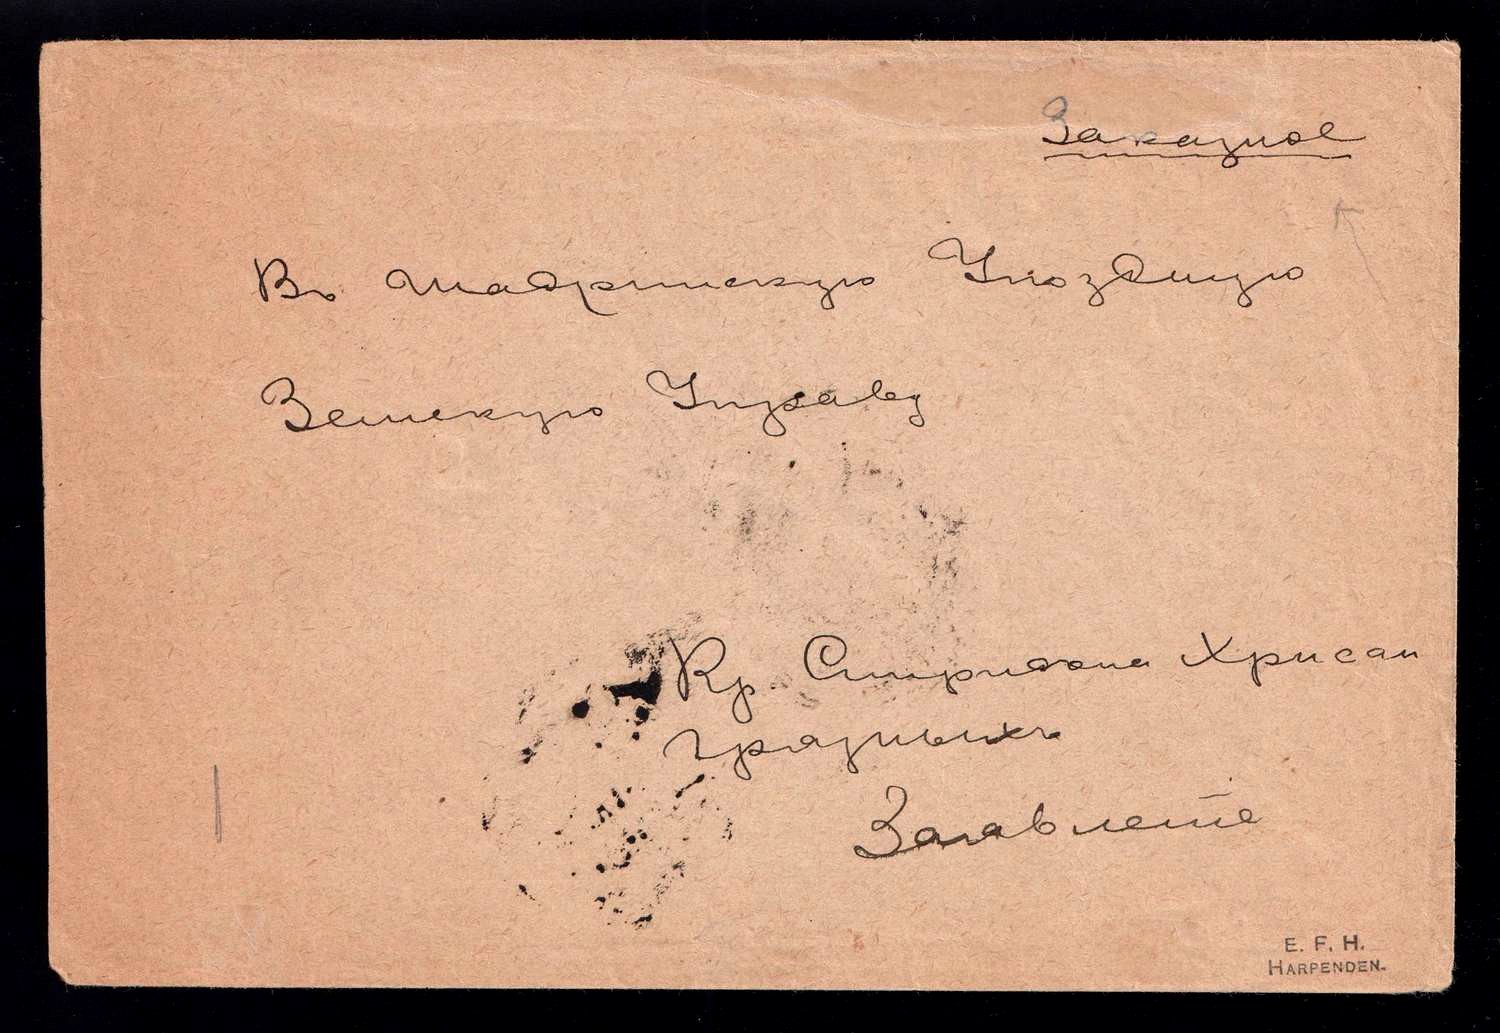 Заказное
Въ Шадринскую Уѣздную
Земскую Управу
Кр. Спиридона Хрисан
Грязныхъ
Заявленіе
E. F. H.
HARPENDEN.